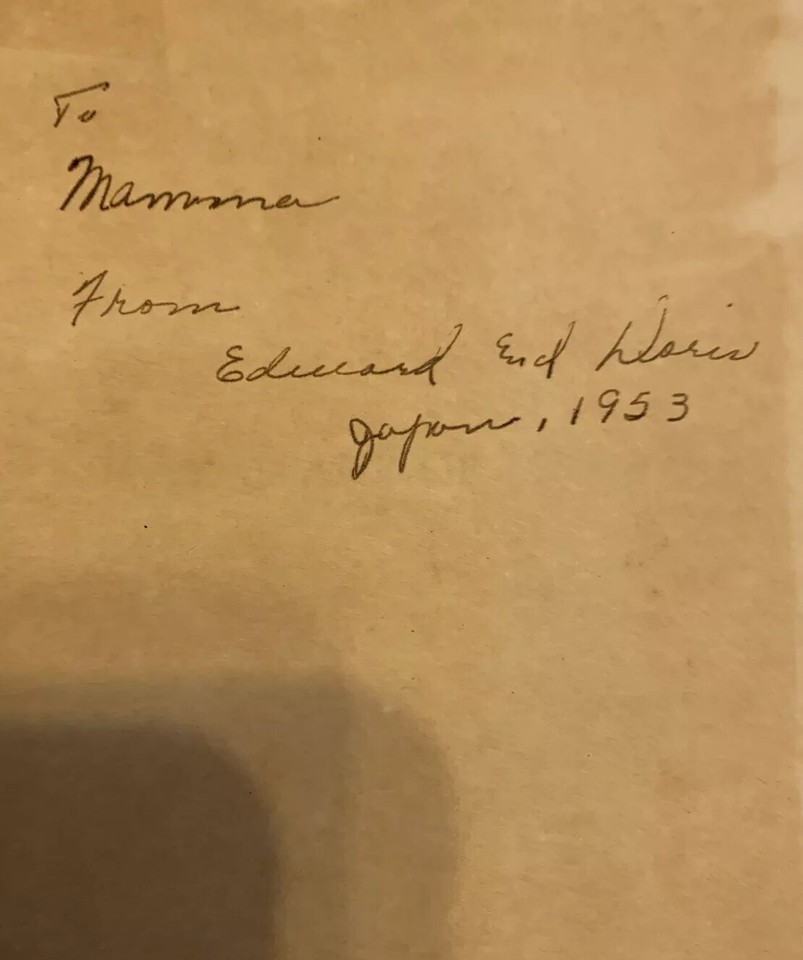 To
Mamma
From
Edward End Doris
Japan, 1953